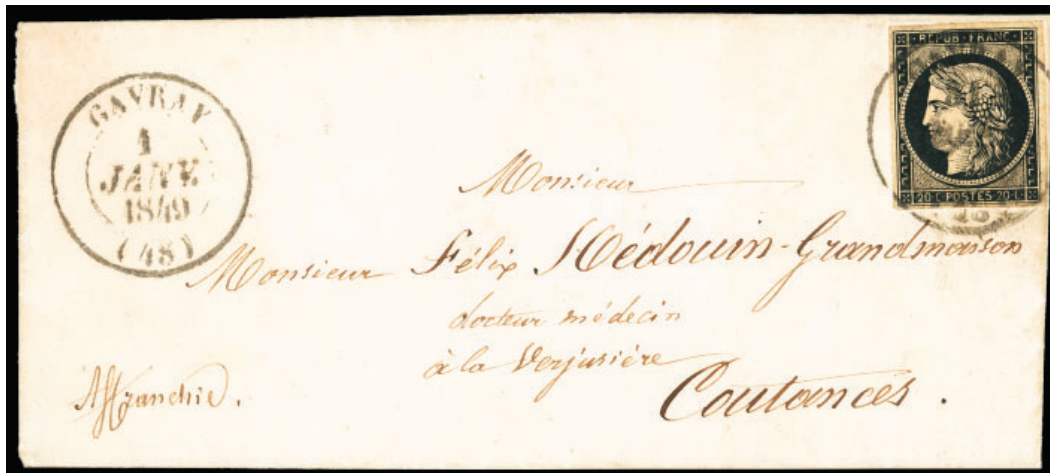 GAVRAY
1
JANV.
1849
(48)
REPUB·FRANC·
20·C·POSTES·20·C·
48
Monsieur
Monsieur Félix Hédouin-Grandmaison
docteur médecin
à la Verjusière
Coutances.
Affranchie.